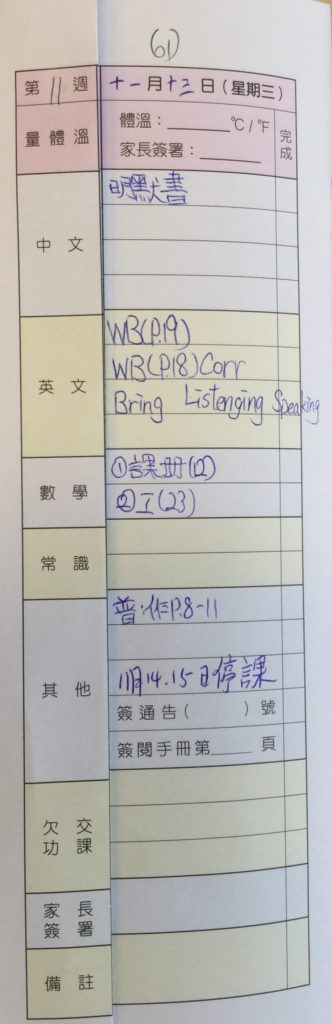 (61)
第11週 十一月十三日（星期三）
量體溫 體溫：______℃/℉ 完成
家長簽署：______
中文 明默書
英文 WB(P.19)
WB(P.18)Corr
Bring Listenging Speaking
數學 ①課冊(12)
②工(23)
常識
其他 普:作P.8-11
11月14.15日停課
簽通告（ ）號
簽閱手冊第____頁
欠交功課
家長簽署
備註